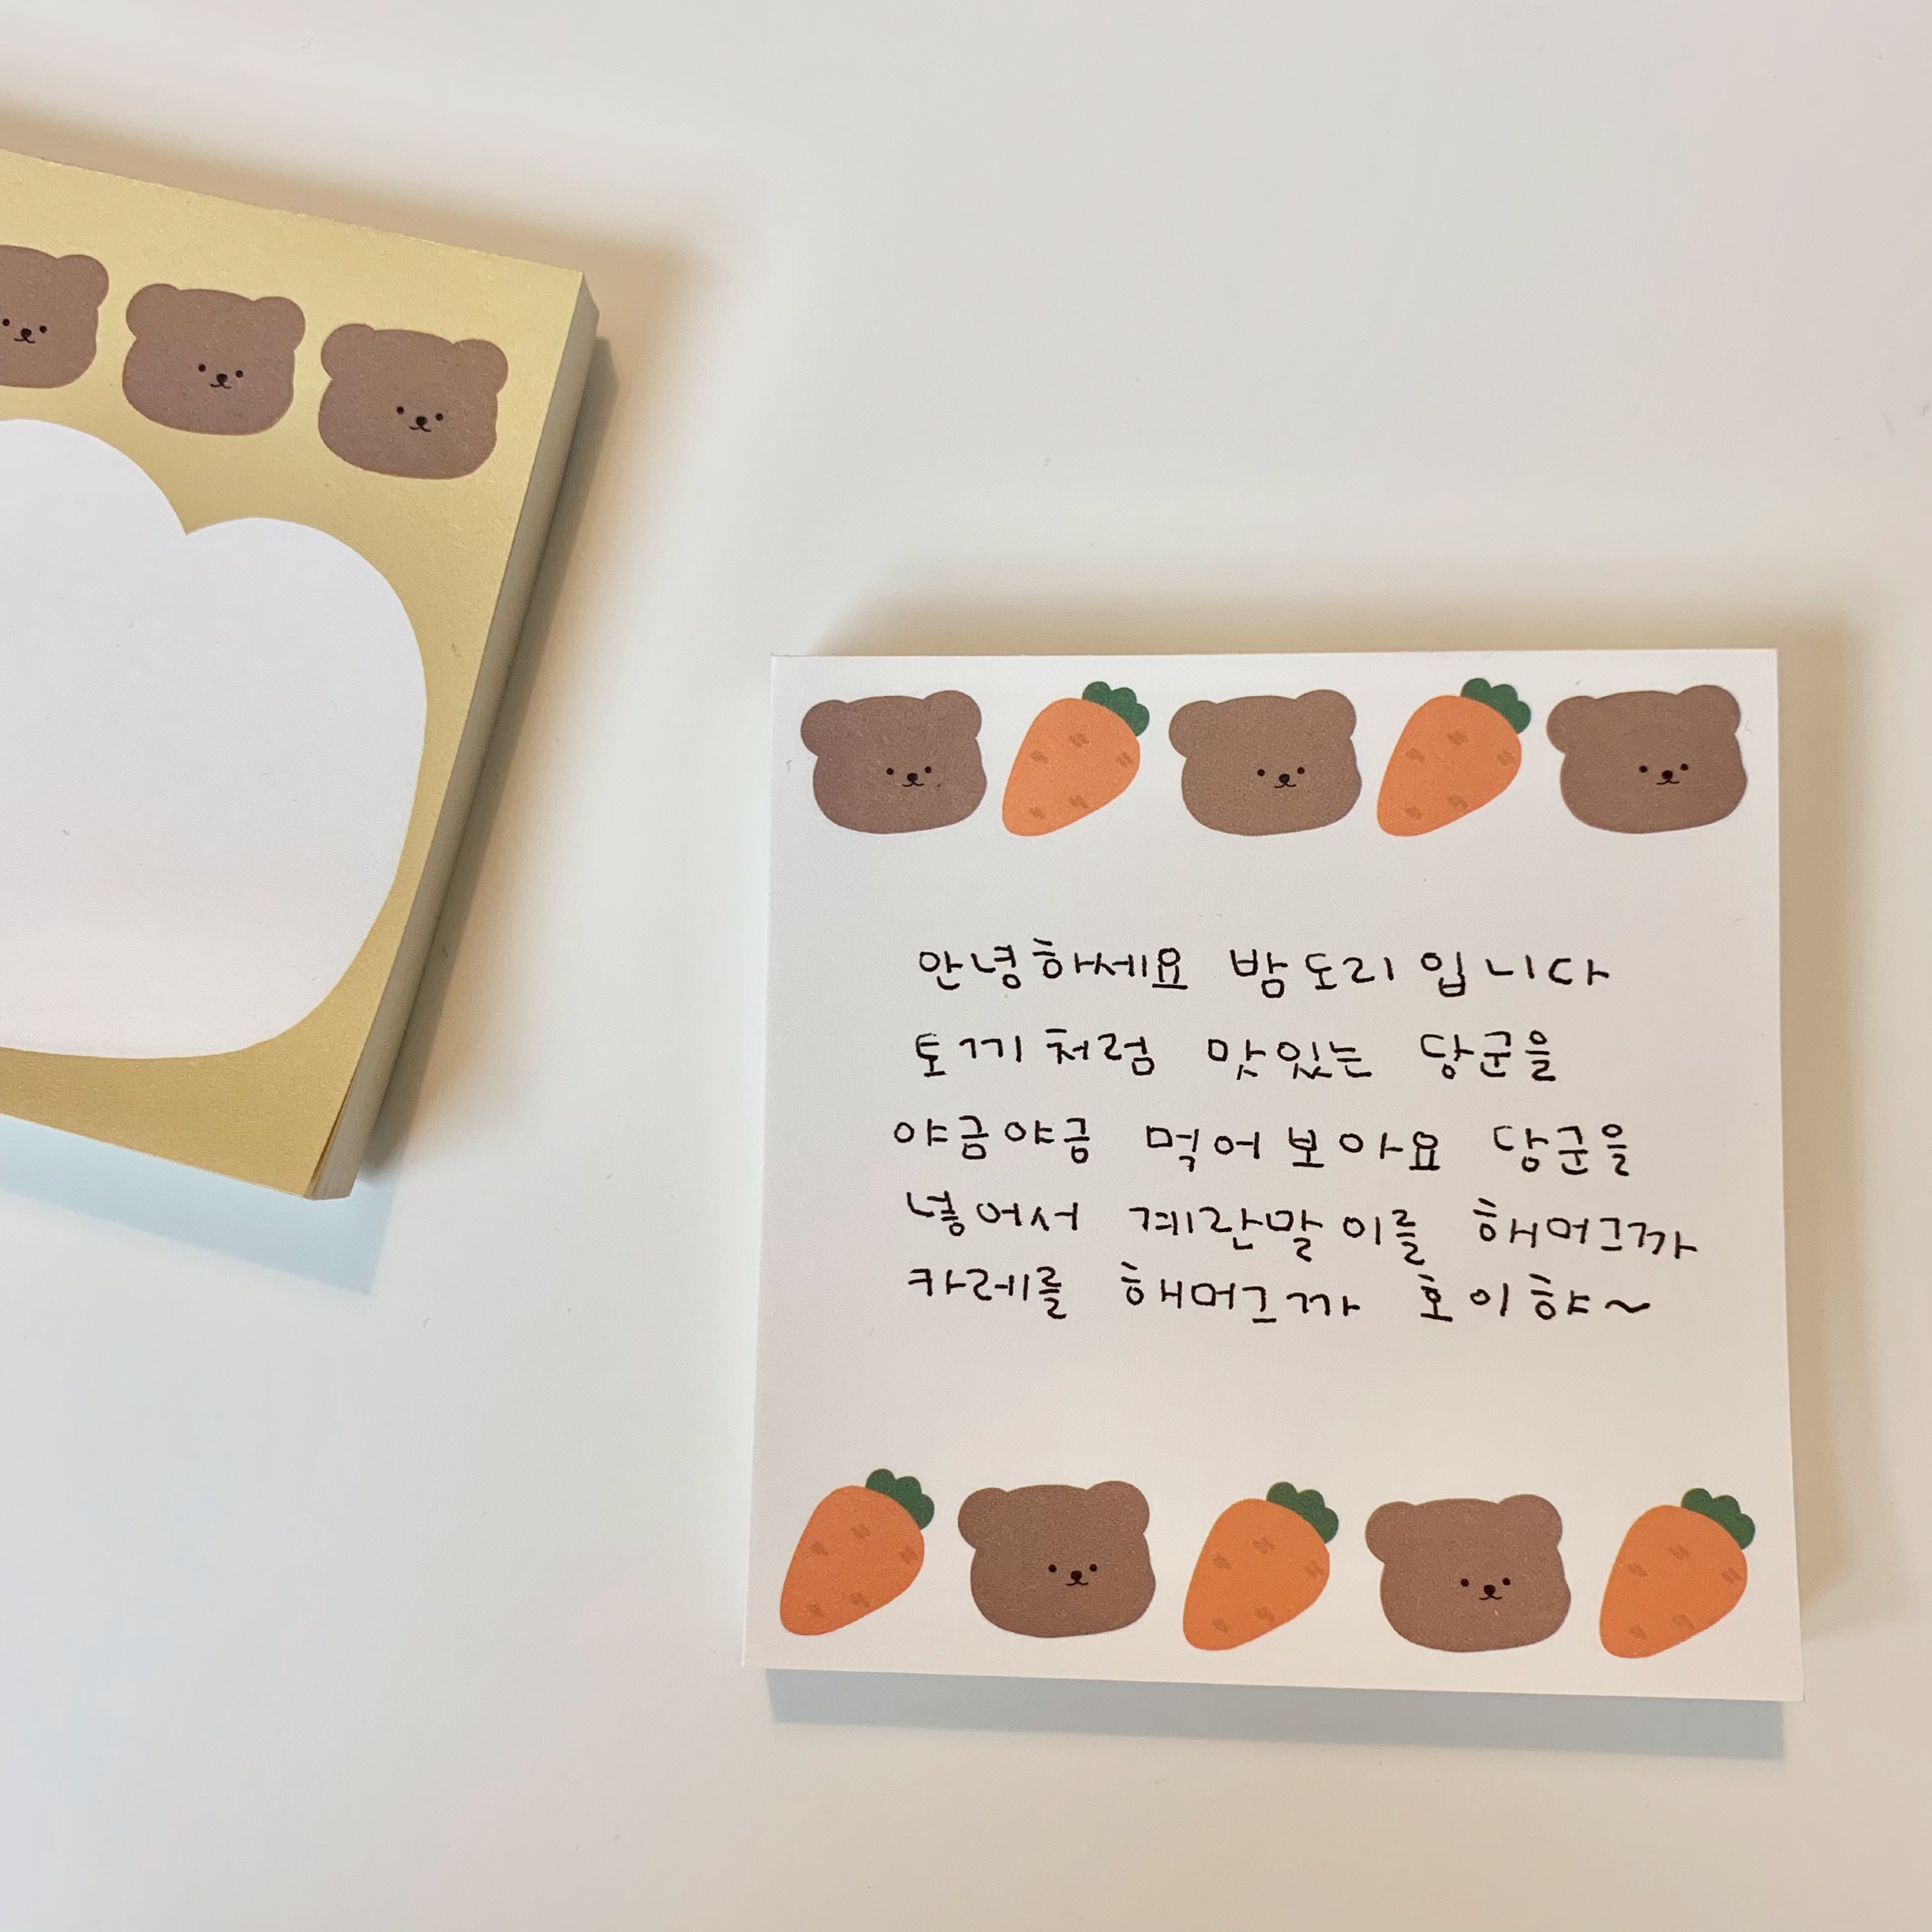 안녕하세요 밤도리입니다
토끼처럼 맛있는 당군을
야금야금 먹어보아요 당군을
넣어서 계란말이를 해머그까
카레를 해머그까 호이햐~